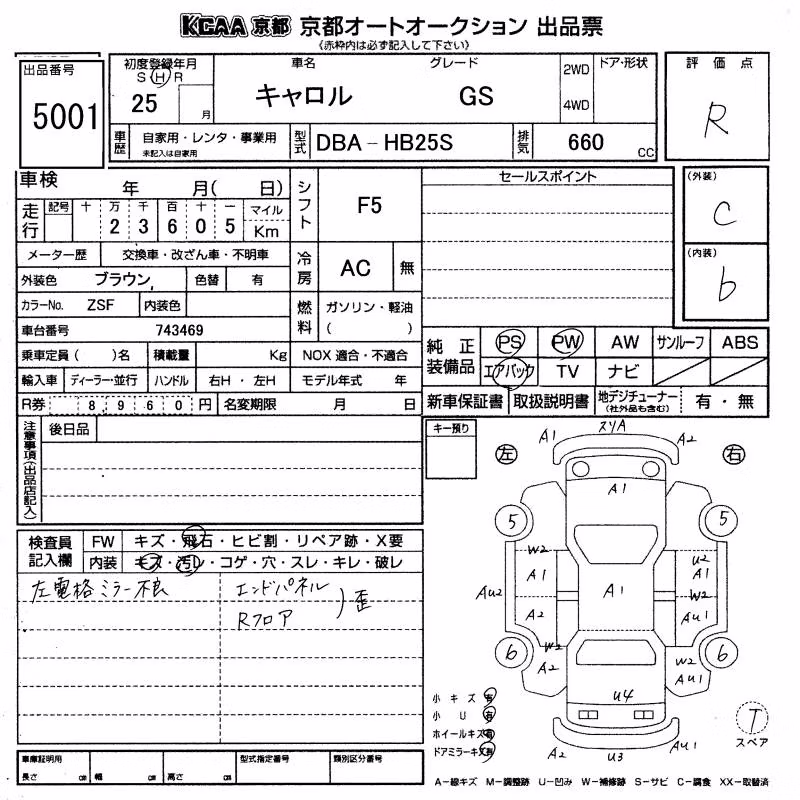 KCAA 京都 京都オートオークション 出品票
《赤枠内は必ず記入して下さい》
出品番号
5001
初度登録年月
S H R
25 月
車名
キャロル
グレード
GS
2WD
4WD
ドア・形状
評価点
R
車歴
自家用・レンタ・事業用
未記入は自家用
型式
DBA-HB25S
排気
660 CC
車検
年 月( 日)
走行
記号 十 万 千 百 十 マイル
2 3 6 0 5 Km
シフト
F5
メーター歴 交換車・改ざん車・不明車
外装色 ブラウン, 色替 有
冷房
AC 無
カラーNo. ZSF 内装色
燃料
ガソリン・軽油
( )
車台番号 743469
乗車定員 ( )名 積載量 Kg NOX 適合・不適合
輸入車 ディーラー・並行 ハンドル 右H・左H モデル年式 年
R券 8 9 6 0 円 名変期限 月 日
セールスポイント
(外装)
C
(内装)
b
純正装備品
PS PW AW サンルーフ ABS
エアバック TV ナビ
新車保証書 取扱説明書 地デジチューナー (社外品も含む) 有・無
注意事項(出品店記入)
後日品
キー預り
検査員記入欄
FW キズ・飛石・ヒビ割・リペア跡・X要
内装 キズ・汚レ・コゲ・穴・スレ・キレ・破レ
左電格ミラー不良
エンドパネル
Rフロア
)歪
左 右
スリA
A1 A2
A1
5 5
W2 U2
A1 A1
AU2 A1 W2
A2 AU1
6 6
W2 W2
A2 AU1
U4
A2 U3 AU1
小キズ 有
小U 有
ホイールキズ 有
ドアミラーキズ 有
T
スペア
車庫証明用
長さ cm 幅 cm 高さ cm
型式指定番号
類別区分番号
A-線キズ M-調整跡 U-凹み W-補修跡 S-サビ C-腐食 XX-取替済